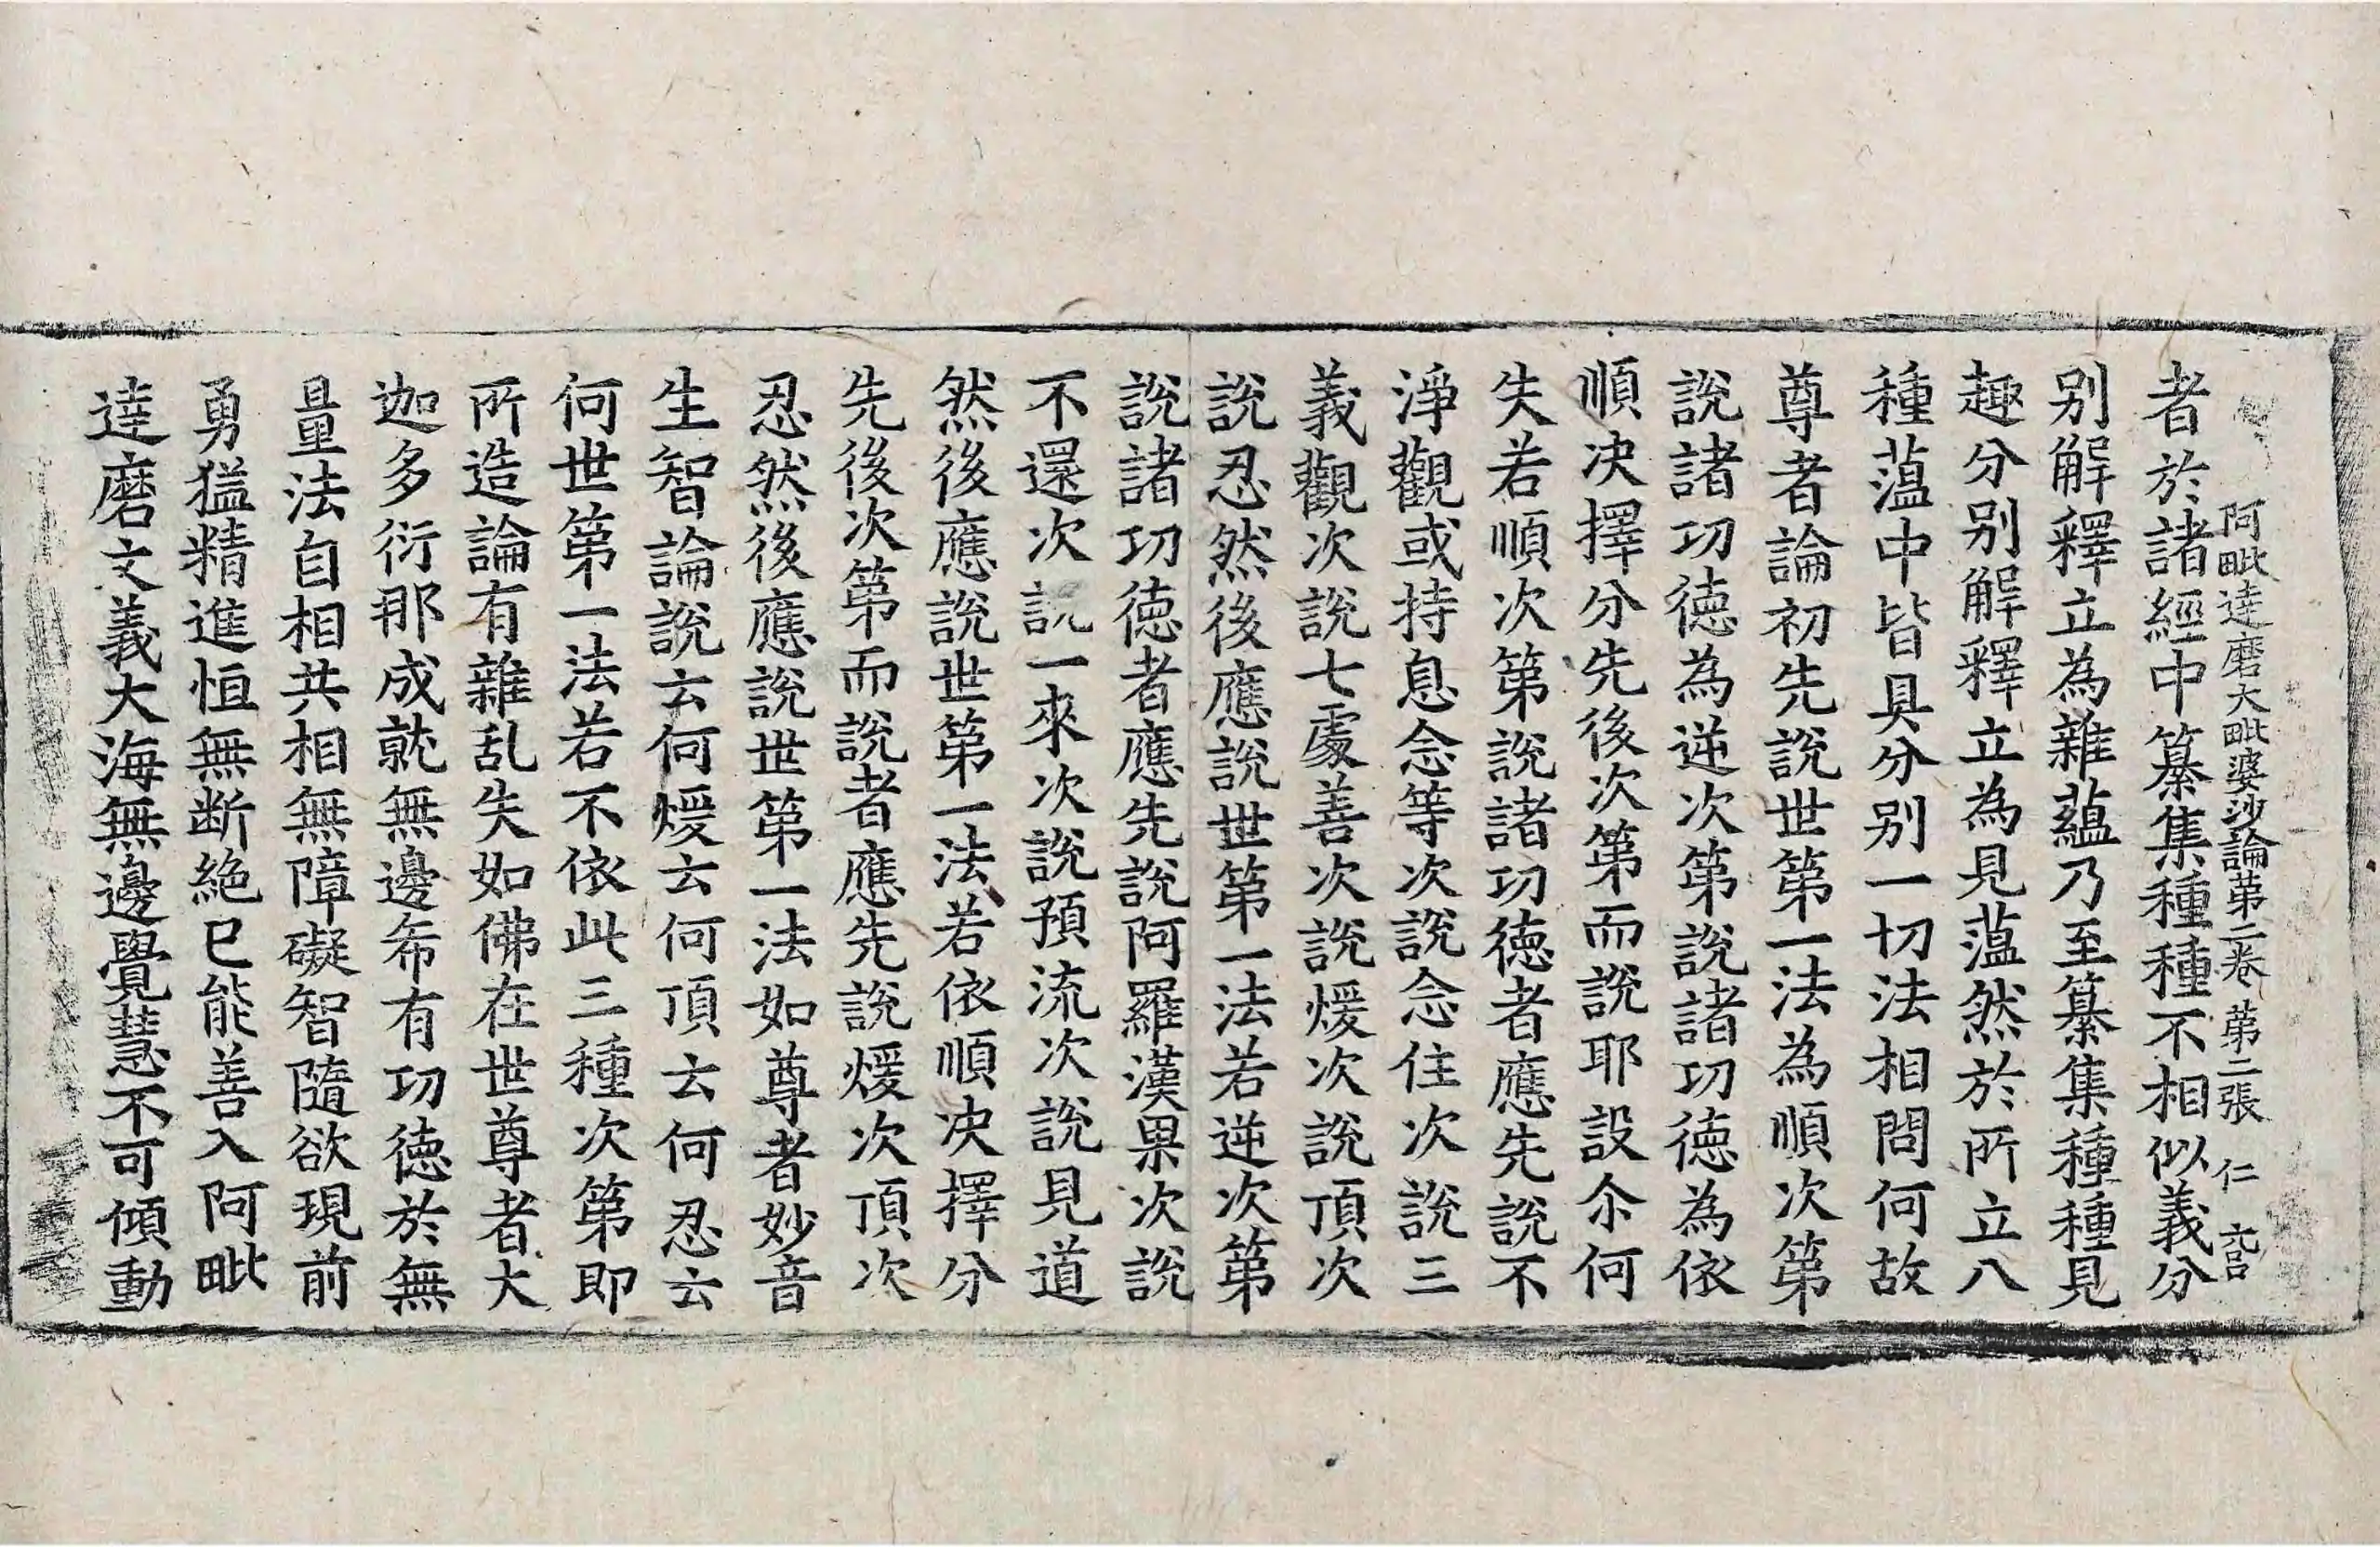 阿毗達磨大毗婆沙論第二卷 第二張 仁
者於諸經中纂集種種不相似義分
別解釋立為雜蘊乃至纂集種種見
趣分別解釋立為見薀然於所立八
種薀中皆具分別一切法相問何故
尊者論初先說世第一法為順次第
說諸功德為逆次第說諸功德為依
順决擇分先後次第而說耶設尒何
失若順次第說諸功德者應先說不
淨觀或持息念等次說念住次說三
義觀次說七處善次說煖次說頂次
說忍然後應說世第一法若逆次第
說諸功德者應先說阿羅漢果次說
不還次說一來次說預流次說見道
然後應說世第一法若依順决擇分
先後次第而說者應先說煖次頂次
忍然後應說世第一法如尊者妙音
生智論說云何煖云何頂云何忍云
何世第一法若不依此三種次第即
所造論有雜乱失如佛在世尊者大
迦多衍那成就無邊希有功德於無
量法自相共相無障礙智隨欲現前
勇猛精進恒無断絶已能善入阿毗
達磨文義大海無邊覺慧不可傾動